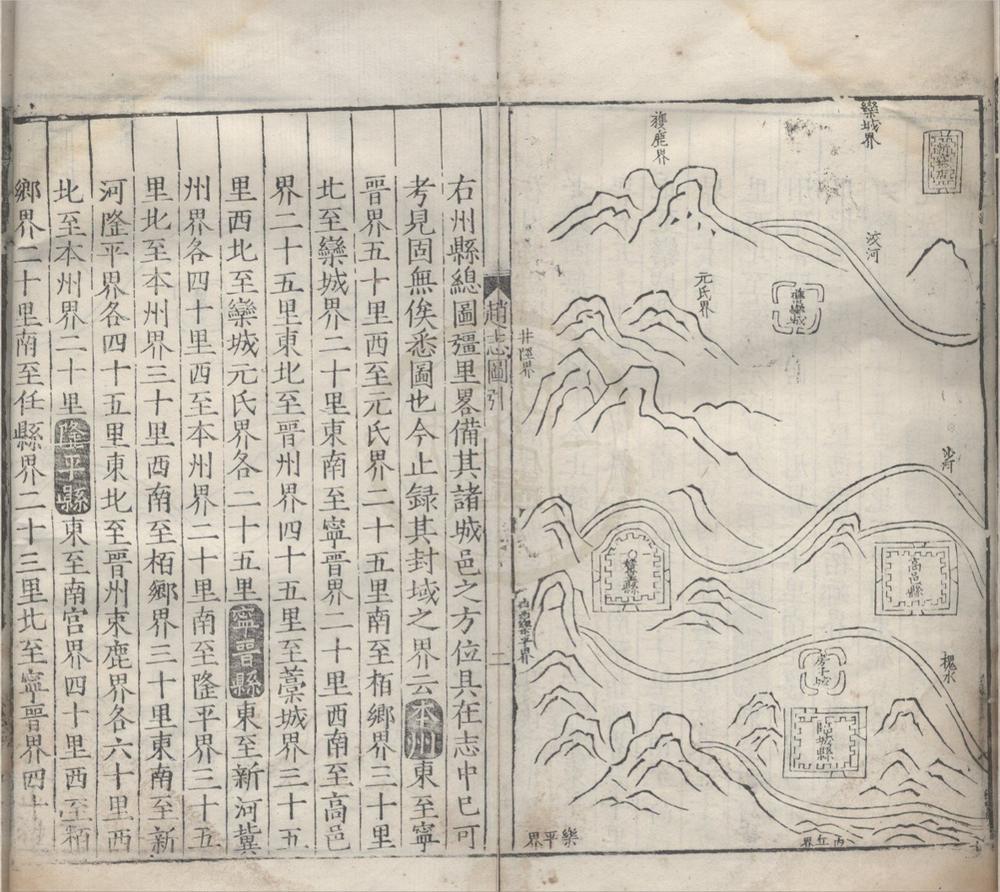 欒城界
獲鹿界
洨河
元氏界
舊欒城
井陘界
沙河
贊皇縣
高邑縣
房子城
槐水
臨城縣
樂平界
內丘界
趙志圖引
二
右州縣總圖疆里畧備其諸城邑之方位具在志中已可
考見固無俟悉圖也今止録其封域之界云本州東至寧
晉界五十里西至元氏界二十五里南至栢鄉界三十里
北至欒城界二十里東南至寧晉界二十里西南至高邑
界二十五里東北至晉州界四十五里至藁城界三十五
里西北至欒城元氏界各二十五里寧晉縣東至新河冀
州界各四十里西至本州界二十里南至隆平界三十五
里北至本州界三十里西南至栢鄉界三十里東南至新
河隆平界各四十五里東北至晉州束鹿界各六十里西
北至本州界二十里隆平縣東至南宫界四十里西至栢
鄉界二十里南至任縣界二十三里北至寧晉界四十